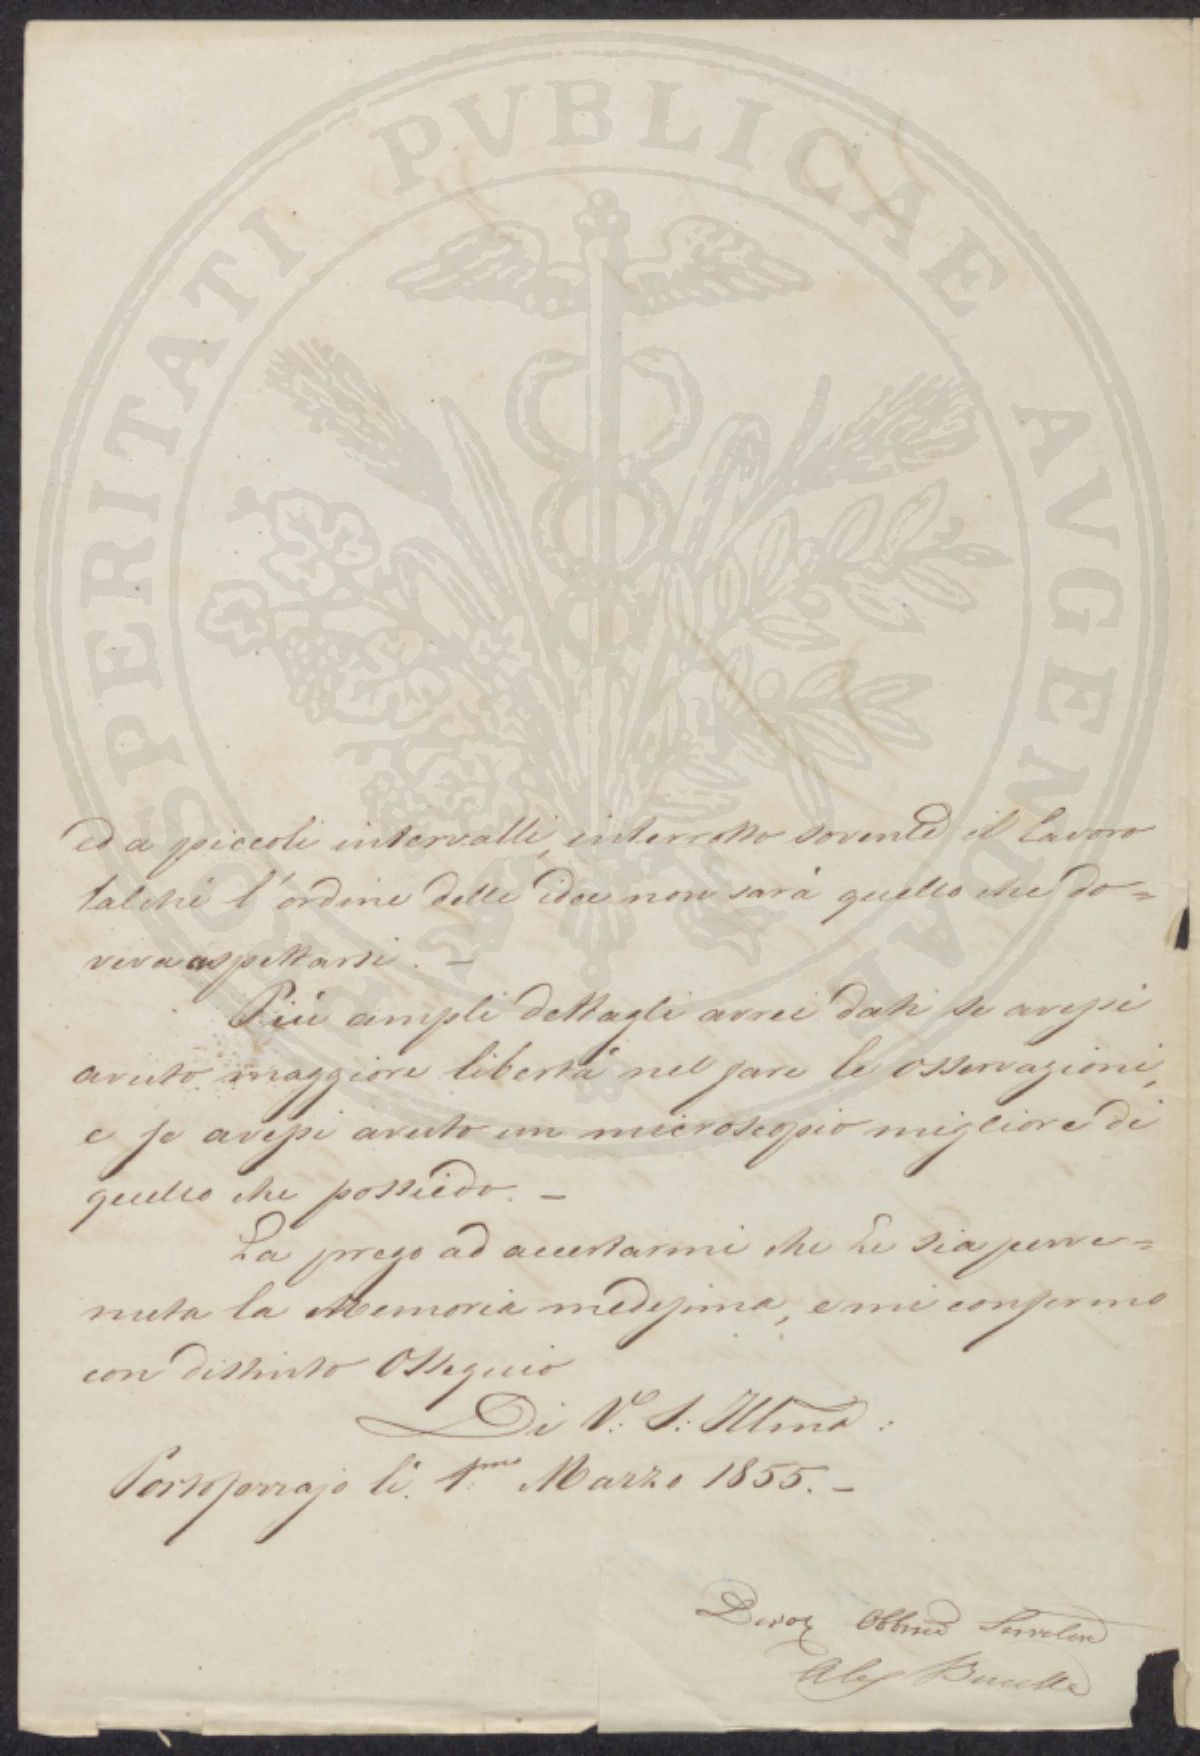 PROSPERITATI PVBLICAE AVGENDAE
ed a piccoli intervalli, interrotto sovente il lavoro
talchè l'ordine delle idee non sarà quello che do=
veva aspettarsi. –
Più ampli dettagli avrei dati se avessi
avuto maggiore libertà nel fare le osservazioni,
e se avessi avuto un microscopio migliore di
quello che possiedo. –
La prego ad accertarmi che Le sia perve=
nuta la Memoria medesima, e mi confermo
con distinto Ossequio
Di V.: S.: Illma:
Portoferrajo li. 1.mo Marzo 1855. –
Devoz Obbmo Servitore